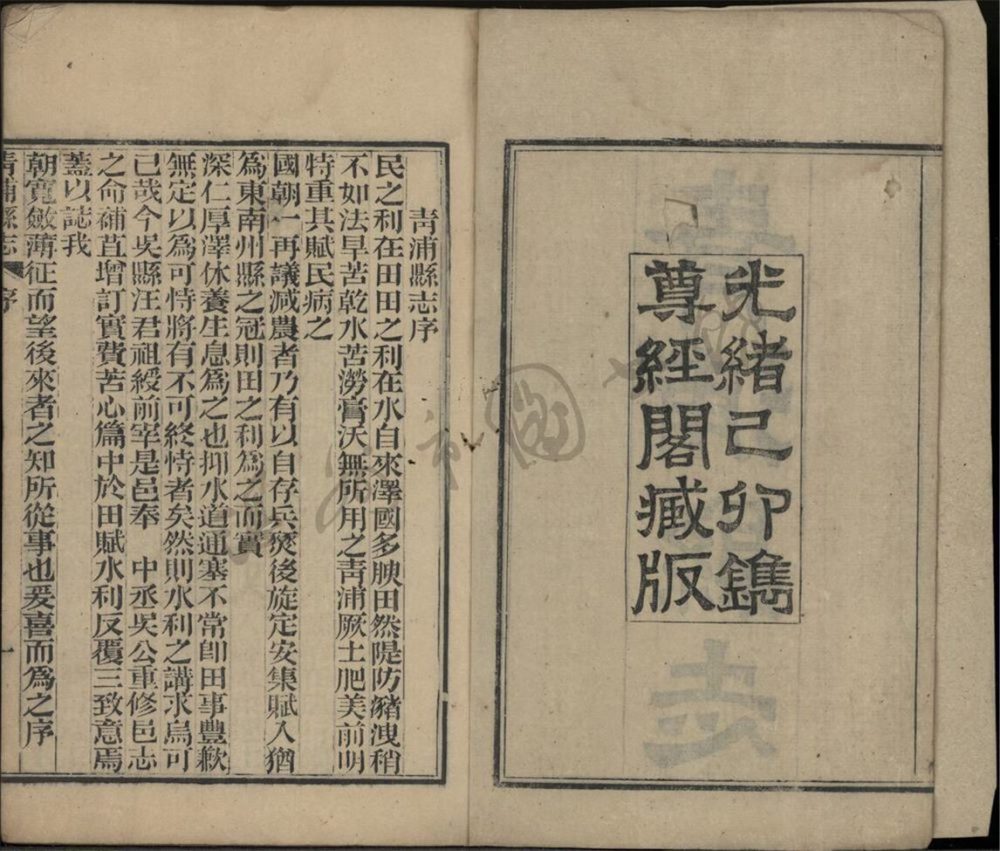 光緒己卯鐫
尊經閣藏版
青浦縣志序
民之利在田田之利在水自來澤國多腴田然隄防豬洩稍
不如法旱苦乾水苦澇膏沃無所用之青浦厥土肥美前明
特重其賦民病之
國朝一再議減農者乃有以自存兵燹後旋定安集賦入猶
爲東南州縣之冠則田之利爲之而實
深仁厚澤休養生息爲之也抑水道通塞不常卽田事豐歉
無定以爲可恃將有不可終恃者矣然則水利之講求烏可
已哉今吳縣汪君祖綬前宰是邑奉 中丞吳公重修邑志
之命補苴增訂實費苦心篇中於田賦水利反覆三致意焉
蓋以誌我
朝寬斂薄征而望後來者之知所從事也爰喜而爲之序
青浦縣志 序 一